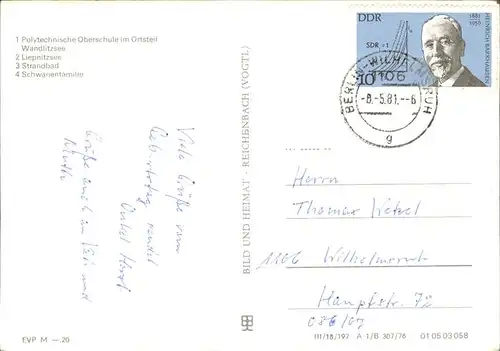 1 Polytechnische Oberschule im Ortsteil
Wandlitzsee
2 Liepnitzsee
3 Strandbad
4 Schwanenfamilie
Viele Grüße vom
Onkel
Grüße auch an und
EVP M —.20
BILD UND HEIMAT · REICHENBACH (VOGTL)
DDR
1881
1956
HEINRICH BARKHAUSEN
10
BERLIN-WILHELMSRUH
1106
-8.-5.81.--6
g
Herrn
Thomas Wetzel
1106 Wilhelmsruh
Hauptstr. 72
III/18/197 A 1/B 307/76 01 05 03 058